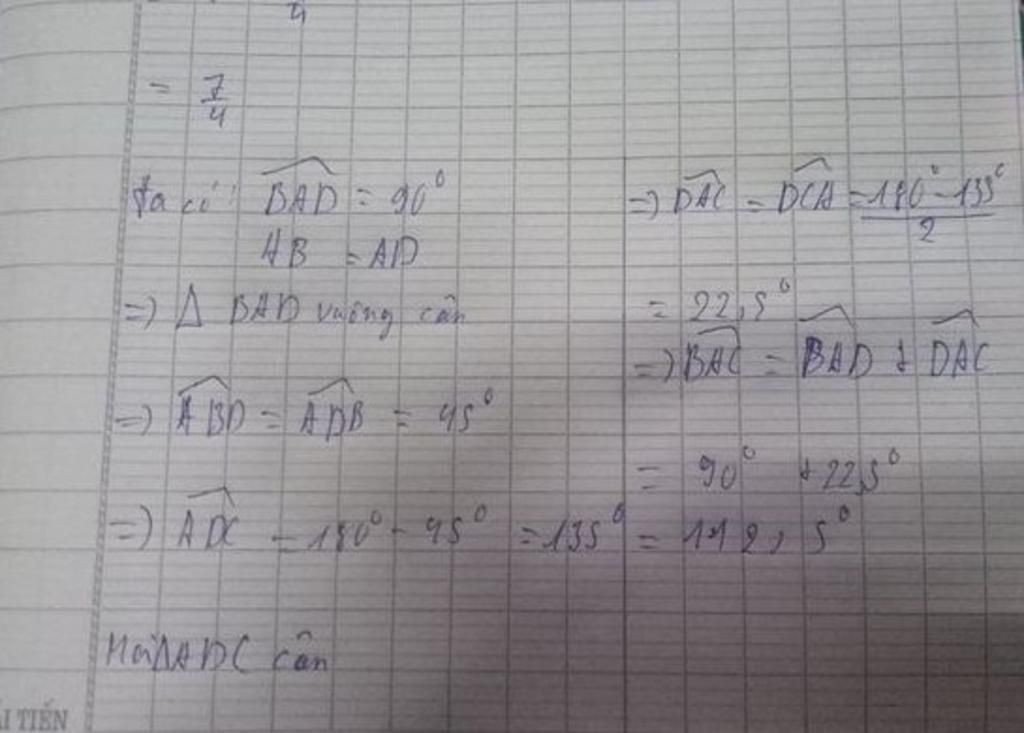 4
= 7/4
Ta có: BAD = 90°
AB = AD
=> Δ BAD vuông cân
=> ABD = ADB = 45°
=> ADC = 180° - 45° = 135°
Mà ΔADC cân
=> DAC = DCA = (180° - 135°)/2
= 22,5°
=> BAC = BAD + DAC
= 90° + 22,5°
= 112,5°
ẢI TIẾN